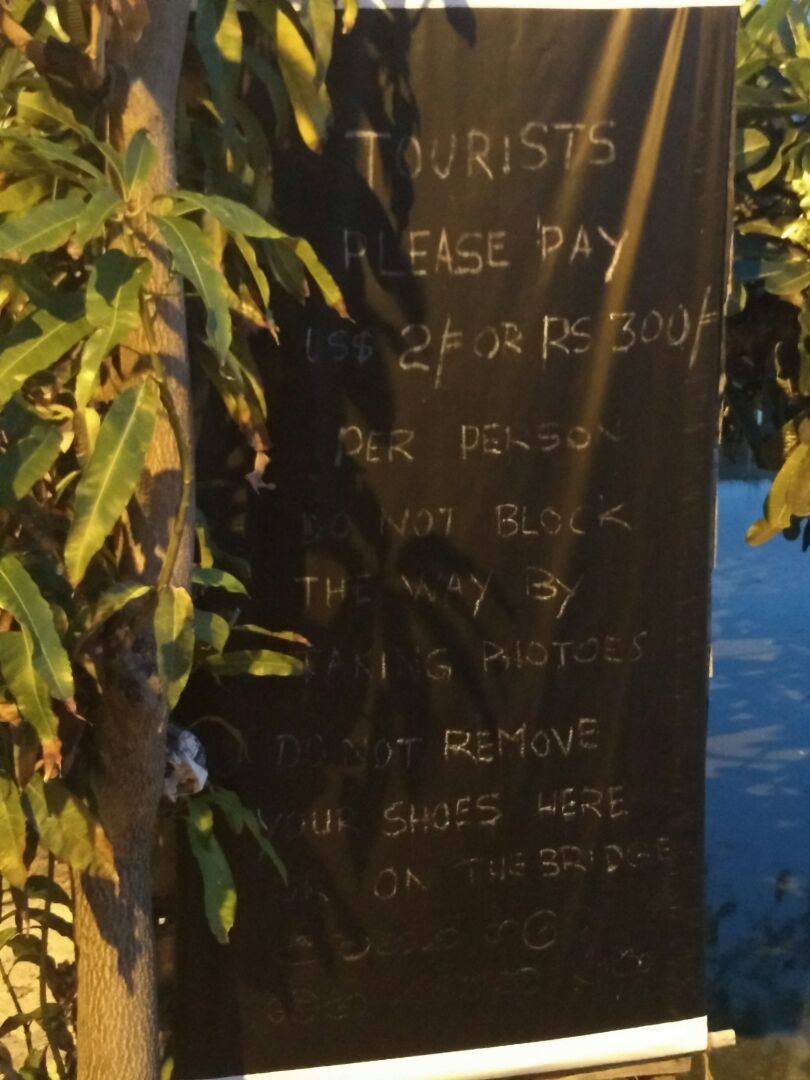 TOURISTS
PLEASE PAY
US$ 2/= OR RS 300/=
PER PERSON
DO NOT BLOCK
THE WAY BY
TAKING PHOTOES
DO NOT REMOVE
YOUR SHOES HERE
OR ON THE BRIDGE